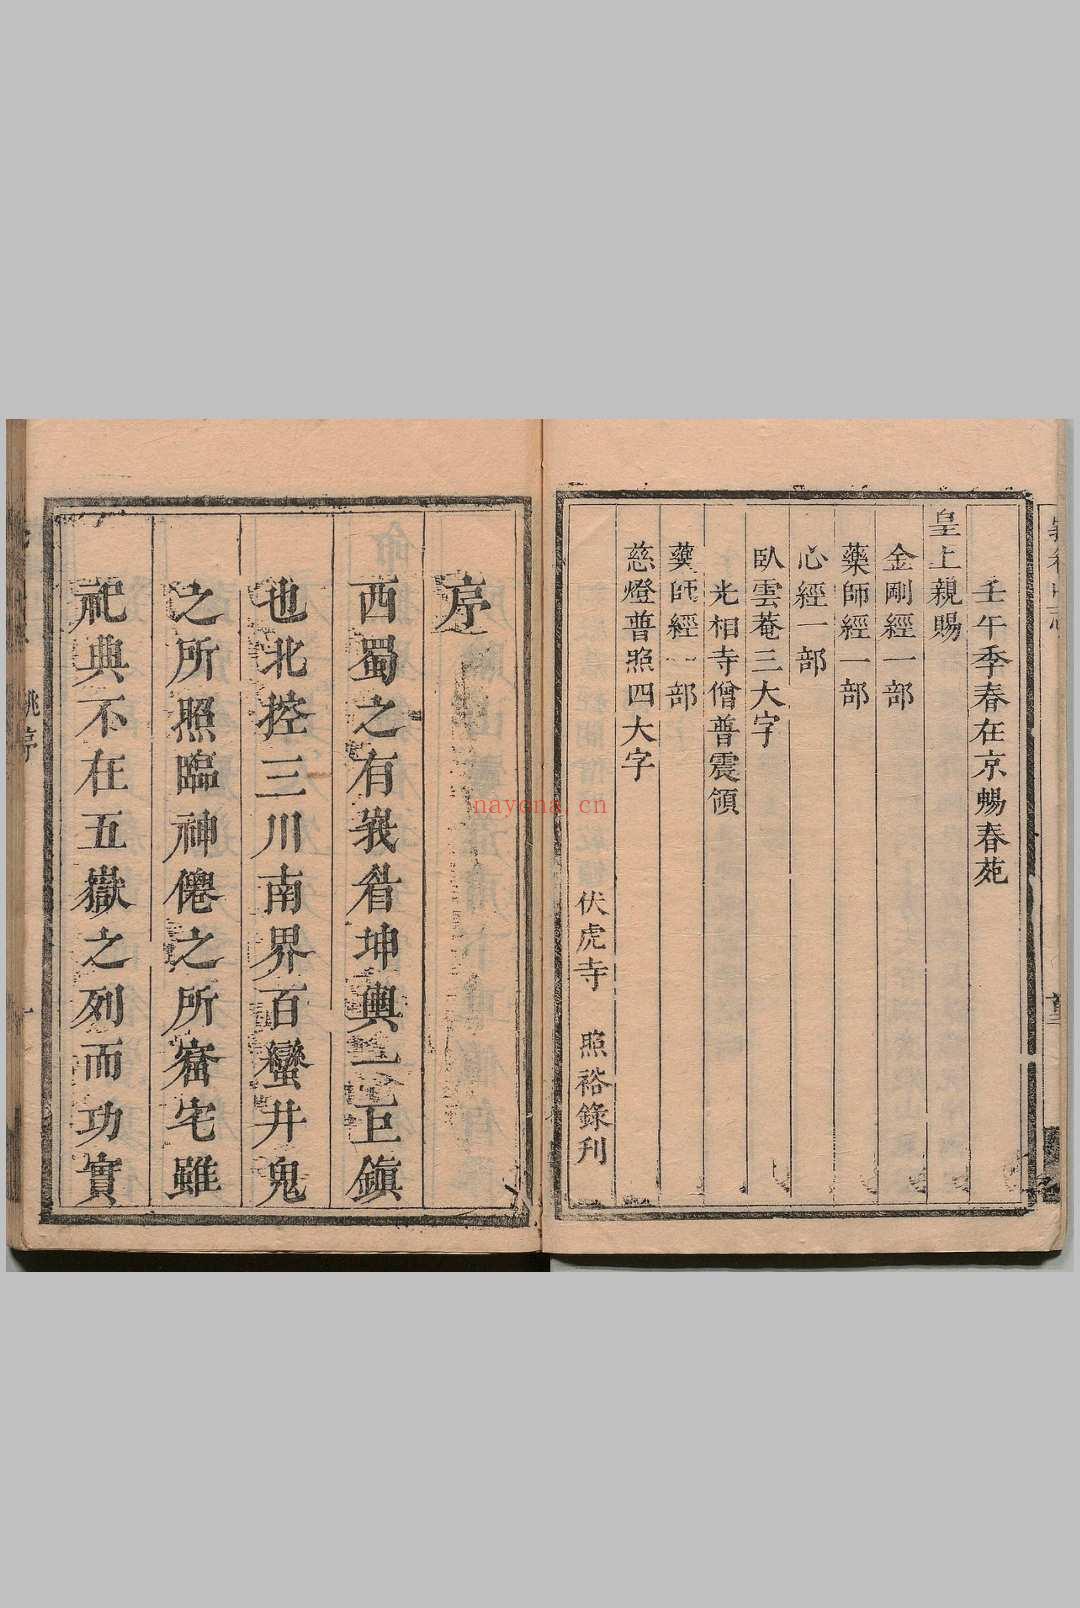 壬午季春在京暢春苑
皇上親賜
金剛經一部
藥師經一部
心經一部
臥雲菴三大字
光相寺僧普震領
藥師經一部
慈燈普照四大字
伏虎寺　照裕錄刊
序
西蜀之有峩眉坤輿一巨鎮
也北控三川南界百蠻井鬼
之所照臨神僊之所窟宅雖
祀典不在五嶽之列而功實
姚序
一
nayona.cn